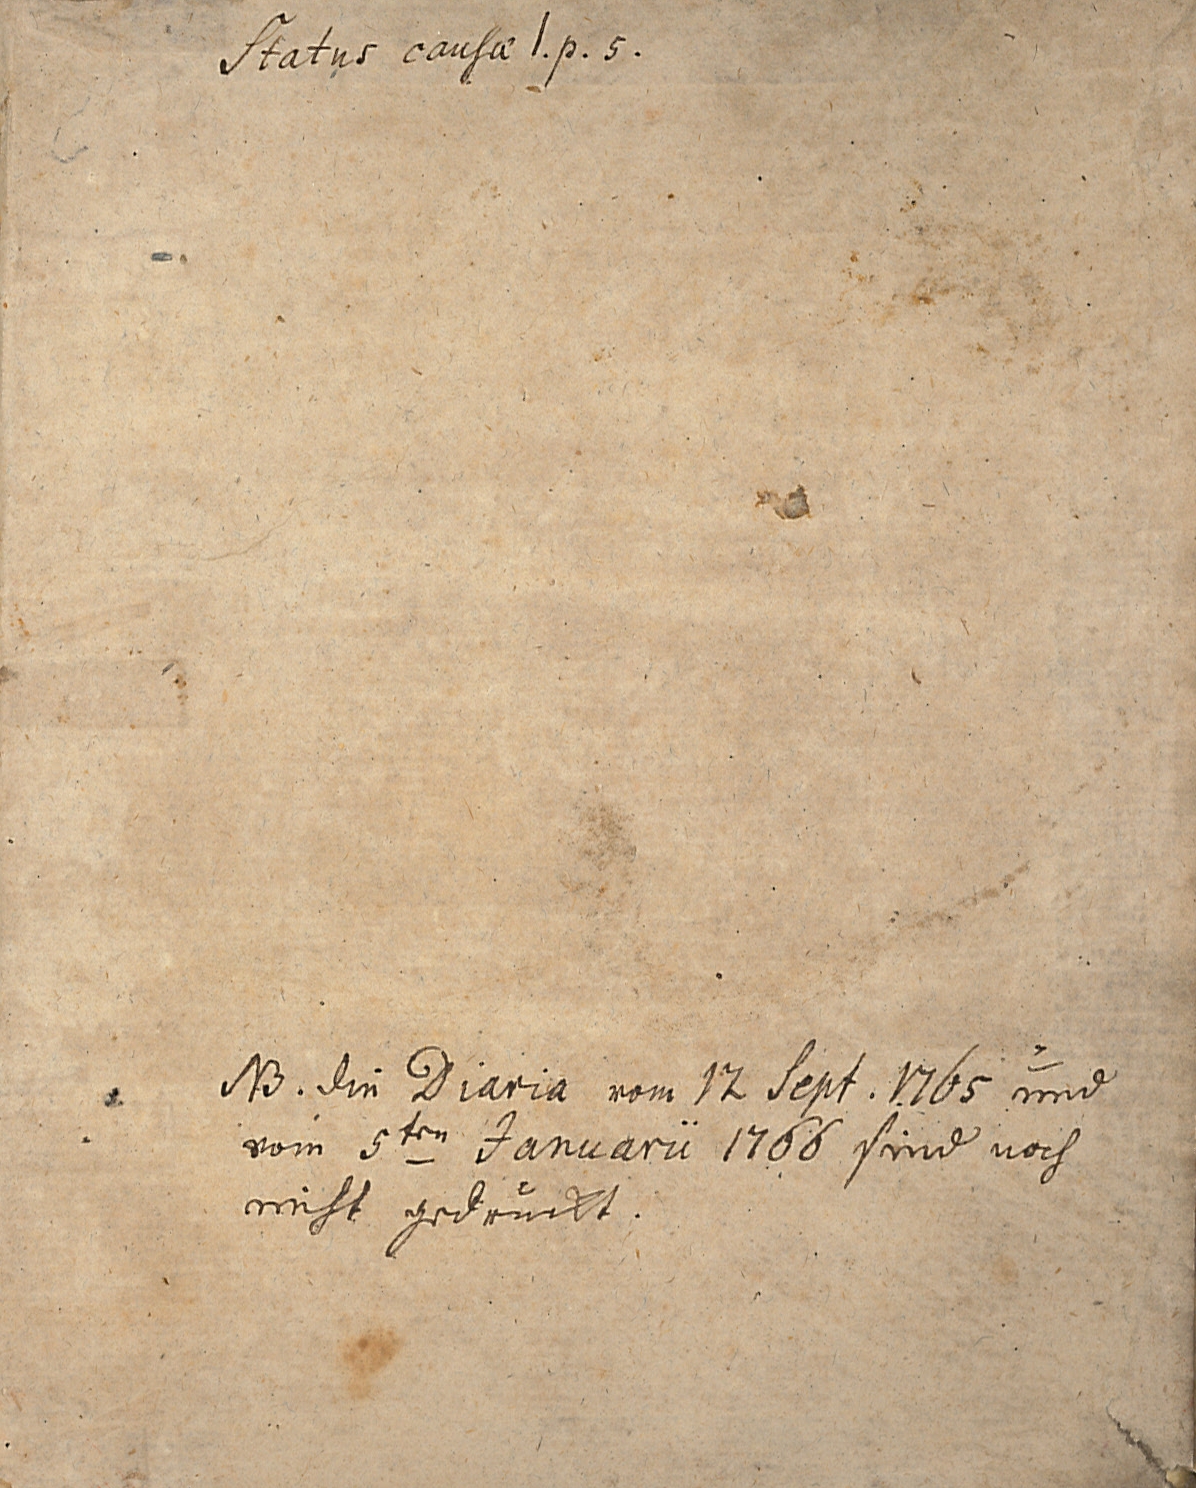 Status causæ l. p. 5.
NB. die Diaria vom 12 Sept. 1765 und
vom 5ten Januarii 1766 sind noch
nicht gedruckt.